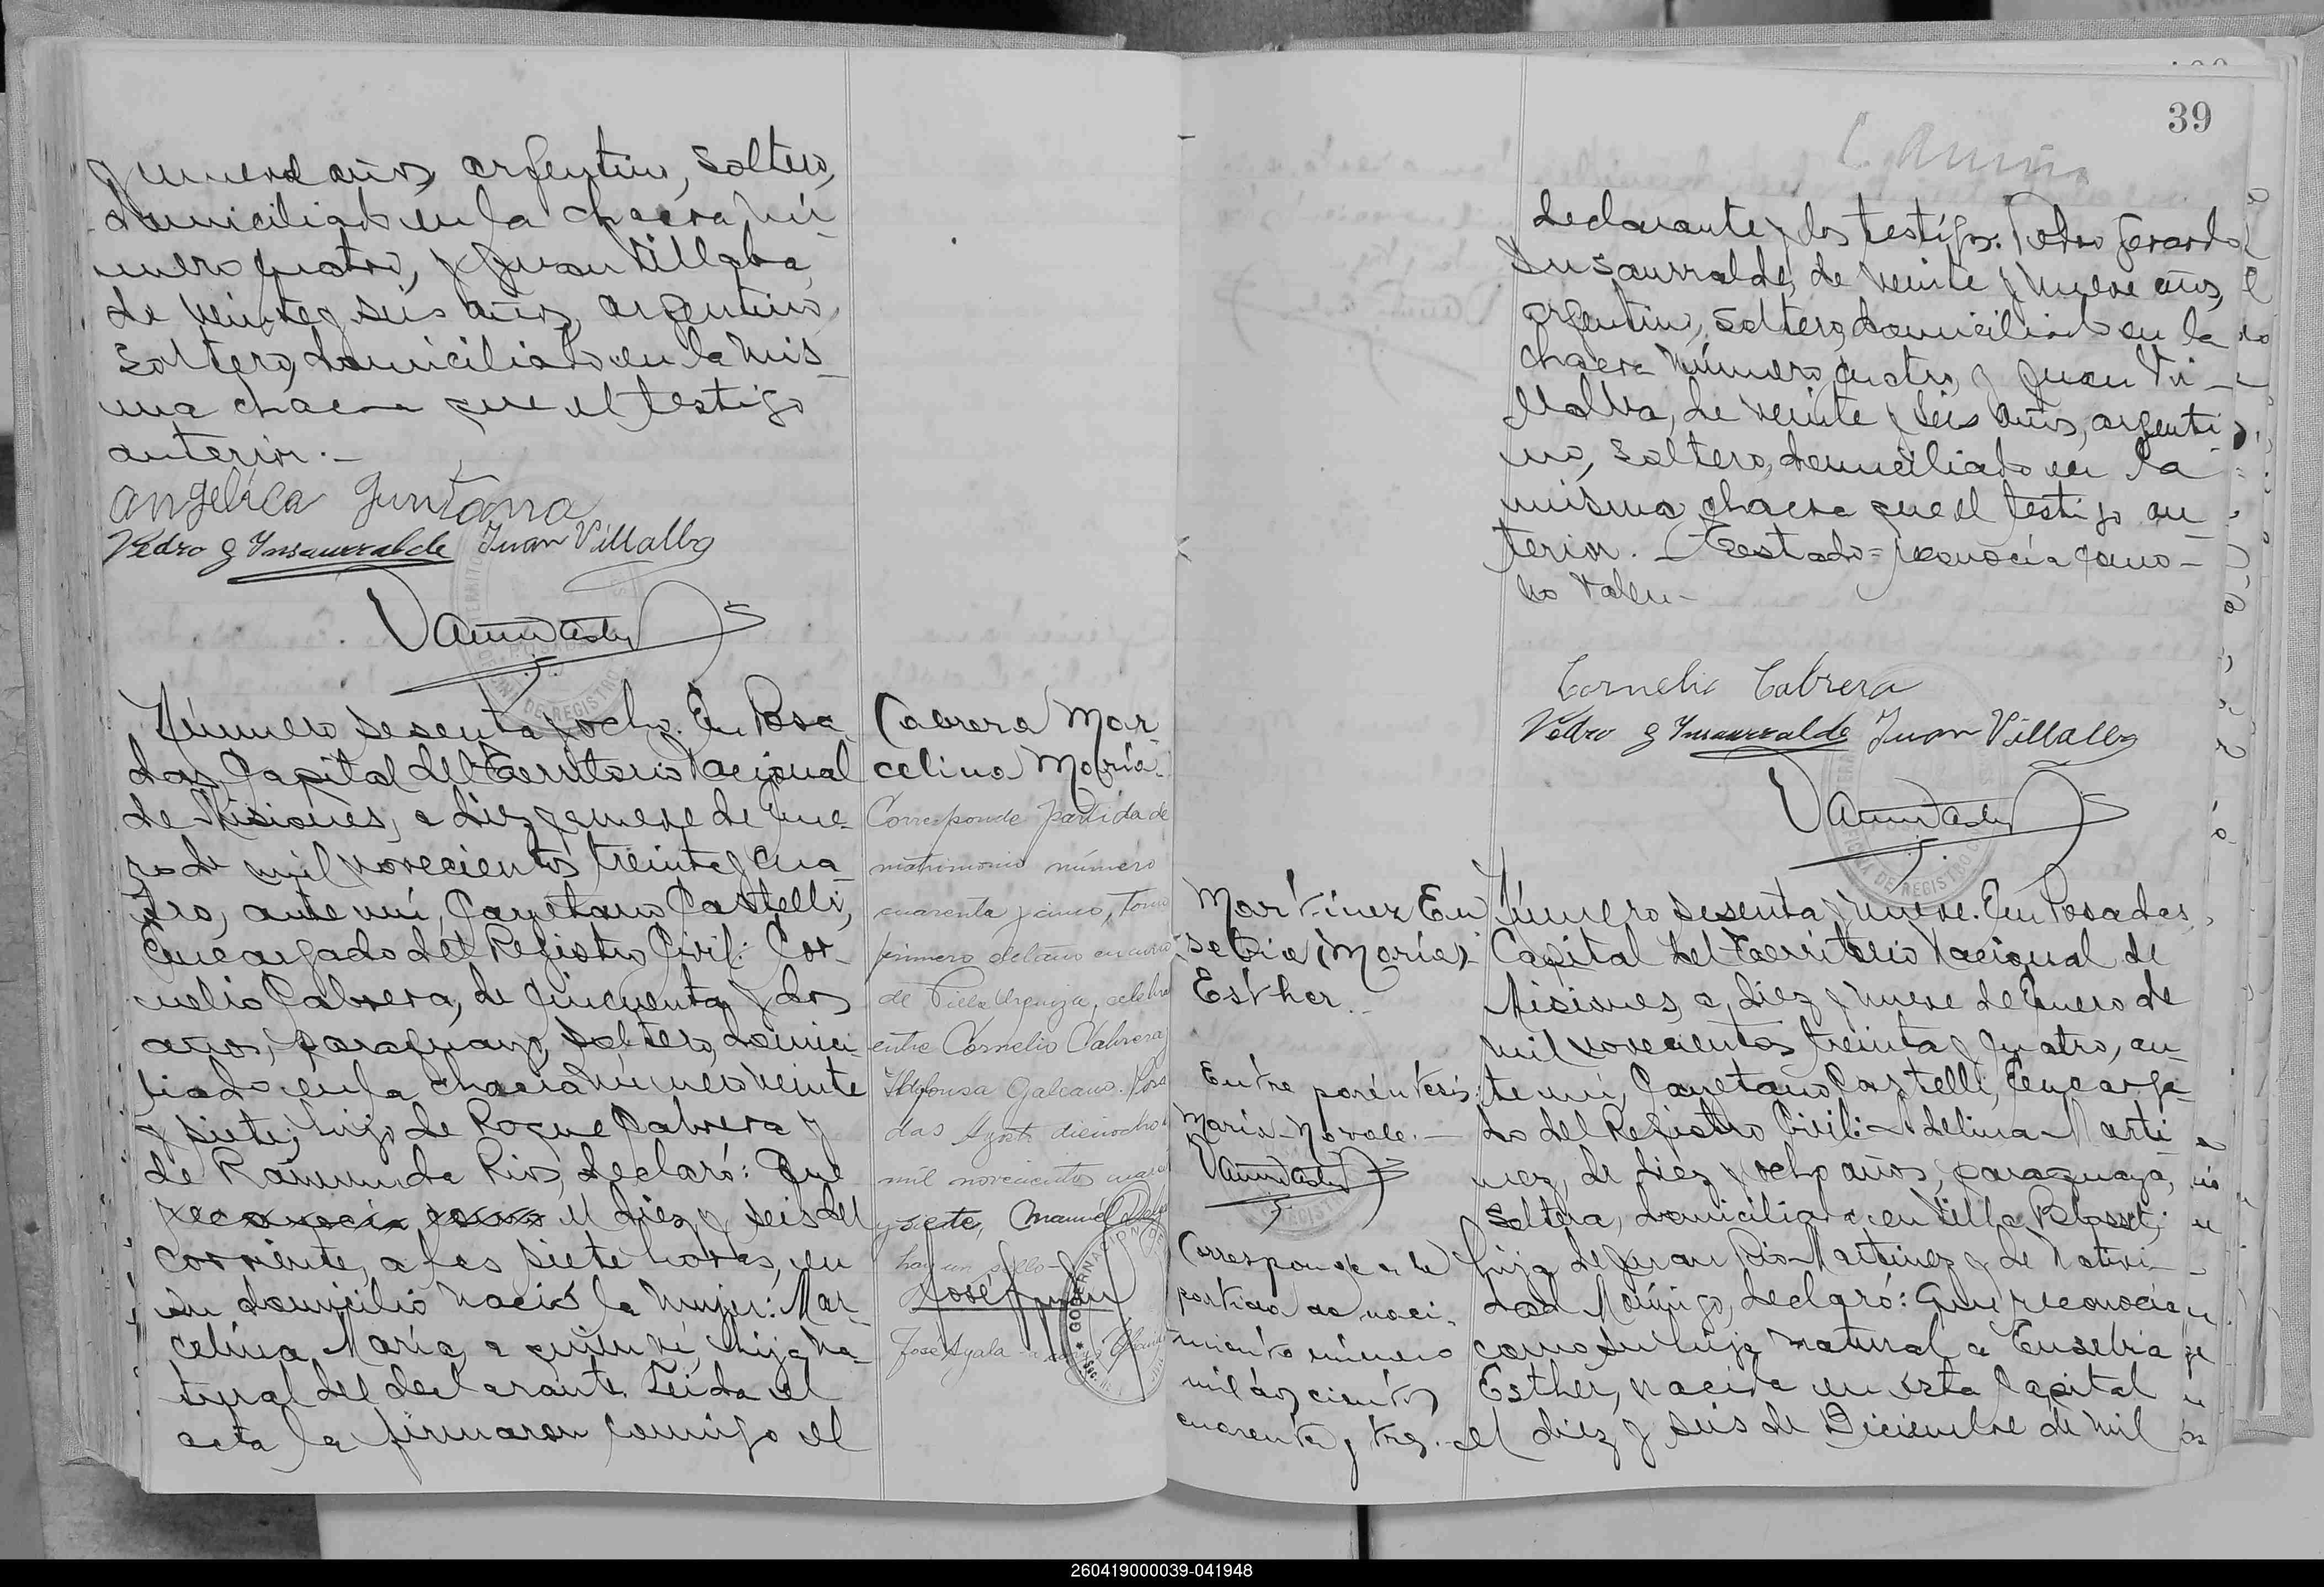 y nueve años, argentino, soltero,
domiciliado en la chacra nú-
mero cuatro, y Juan Villalba,
de veinte y seis años, argentino,
soltero, domiciliado en la mis-
ma chacra que el testigo
anterior.-
Angelica Quintana
Pedro G Insaurralde Juan Villalba
Número sesenta y ocho. En Posa-
das, Capital del Territorio Nacional
de Misiones, a diez y nueve de Ene-
ro de mil novecientos treinta y cua-
tro, ante mí, Cayetano Castelli,
Encargado del Registro Civil: Cor-
nelio Cabrera, de cincuenta y dos
años, paraguayo, soltero, domici-
liado en la chacra número veinte
y siete, hijo de Roque Cabrera y
de Raimunda Rios, declaró: Que
reconocía como el diez y seis del
corriente, a las siete horas, en
su domicilio nació la mujer: Mar-
celina María, a quien ví, hija na-
tural del declarante. Leida el
acta la firmaron conmigo el
Cabrera Mar-
celina María.
Corresponde partida de
matrimonio número
cuarenta y cinco, tomo
primero del año en curso
de Villa Urquiza, celebra
entre Cornelio Cabrera
Ildefonsa Galeano. Posa
das Agosto dieciocho
mil novecientos cuare
y siete, Manuel
hay un sello
José Ayala
39
declarante y los testigos: Pedro Gerardo
Insaurralde, de veinte y nueve años,
argentino, soltero, domiciliado en la
chacra número cuatro, y Juan Vi-
llalba, de veinte y seis años, argenti-
no, soltero, domiciliado en la
misma chacra que el testigo an-
terior.- Testado = reconocía como -
no vale.-
Cornelio Cabrera
Pedro G Insaurralde Juan Villalba
Martinez Eu
sebia (María)
Esther.
Entre paréntesis:
María- No vale.-
Corresponde a la
partida de naci-
miento número
mil doscientos
cuarenta y tres.-
Número sesenta y nueve. En Posadas,
Capital del Territorio Nacional de
Misiones, a diez y nueve de Enero de
mil novecientos treinta y cuatro, an-
te mí, Cayetano Castelli, Encarga-
do del Registro Civil: Adelina Marti
nez, de diez y ocho años, paraguaya,
soltera, domiciliada en Villa Blosset,
hija de Juan Pio Martinez y de Nativi-
dad Moníngo, declaró: Que reconocía
como su hija natural a Eusebia
Esther, nacida en esta Capital
el diez y seis de Diciembre de mil
260419000039-041948